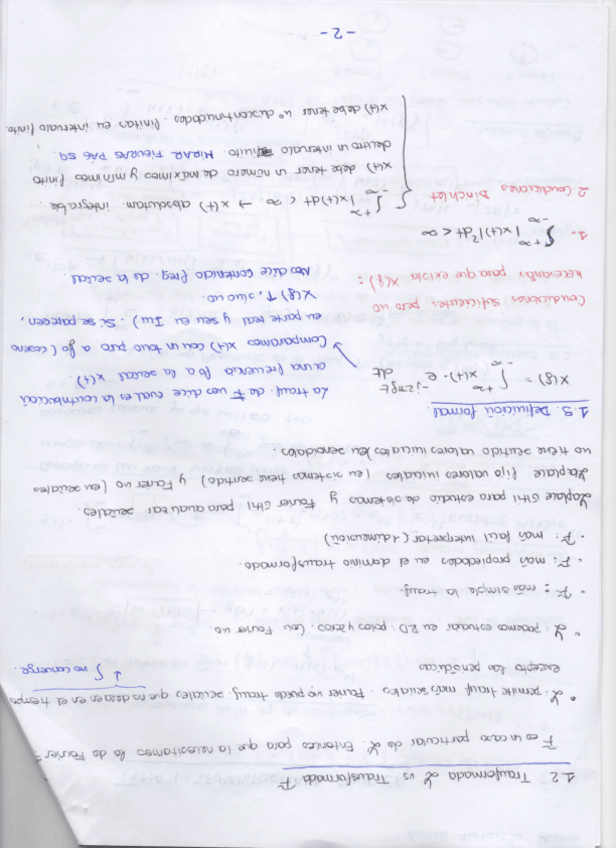 1.2 Transformada ℒ vs Transformada F
F es un caso particular de ℒ. Entonces para que la necesitamos la de Fourier?
• ℒ permite transf. más señales. Fourier no puede transf. señales que no decaen en el tiempo
excepto las periódicas
↓ ∫ no converge.
• ℒ: podemos estudiar en 2D: polos y zeros. (en Fourier no.
• F: más simple la transf.
• F: más propiedades en el dominio transformado.
• F: más facil interpretar (1 dimensión)
Laplace útil para estudio de sistemas y Fourier útil para analizar señales.
Laplace fija valores iniciales (en sistemas tiene sentido) y Fourier no (en señales
no tiene sentido valores iniciales) en senoidales.
1.3. Definición formal.
X(f) = ∫_{-∞}^{+∞} x(t) · e^{-j2πft} dt
La transf. de F nos dice cual es la contribución
a una frecuencia f0 fa la señal x(t)
Comparamos x(t) con un tono puro a f0 (coseno
en parte real y sen en Im). Si se parecen,
X(f) ↑, sino no.
Nos dice contenido freq. de la señal.
Condiciones suficientes pero no
necesarias para que exista X(f):
1. ∫_{-∞}^{+∞} |x(t)|² dt < ∞
2 Condiciones Dirichlet
∫_{-∞}^{+∞} |x(t)| dt < ∞ → x(t) absolutam. integrable.
x(t) debe tener un número de máximos y mínimos finito
dentro un intervalo finito. MIRAR FIGURAS PÁG 59.
x(t) debe tener nº discontinuidades finitas en intervalo finito
-2-